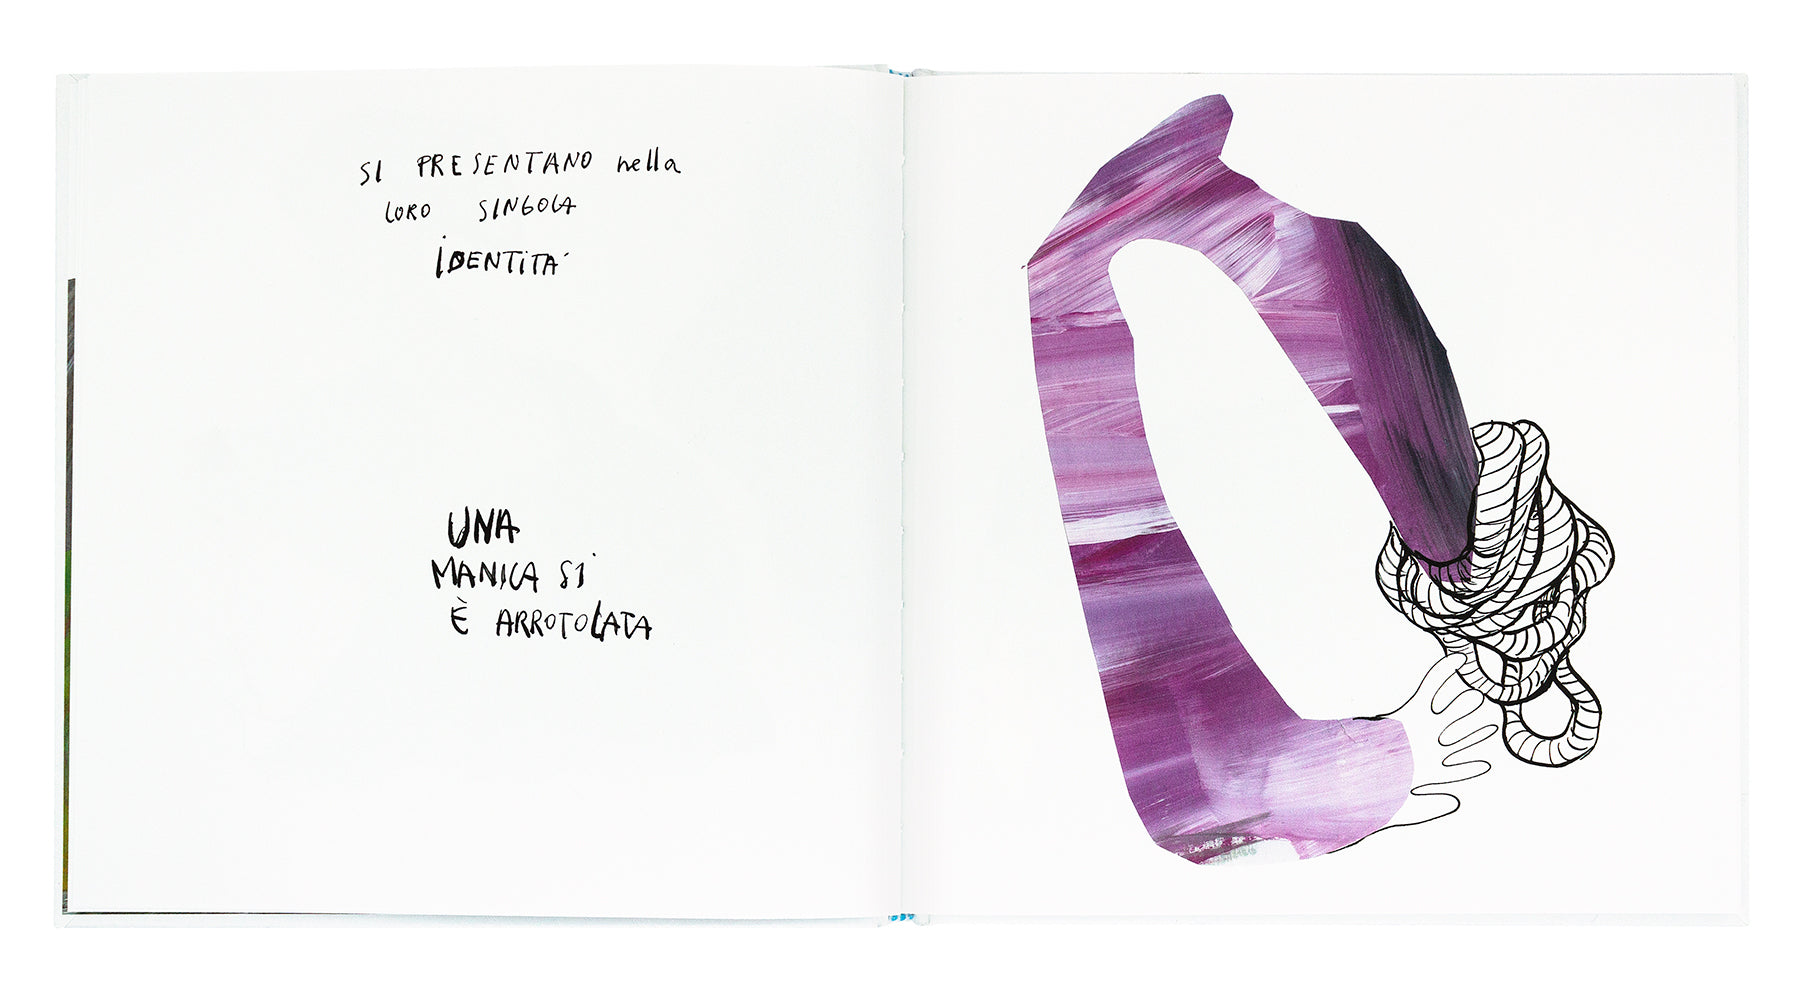 SI PRESENTANO nella
LORO SINGOLA
iDENTiTA'
UNA
MANICA Si
È ARROTOLATA